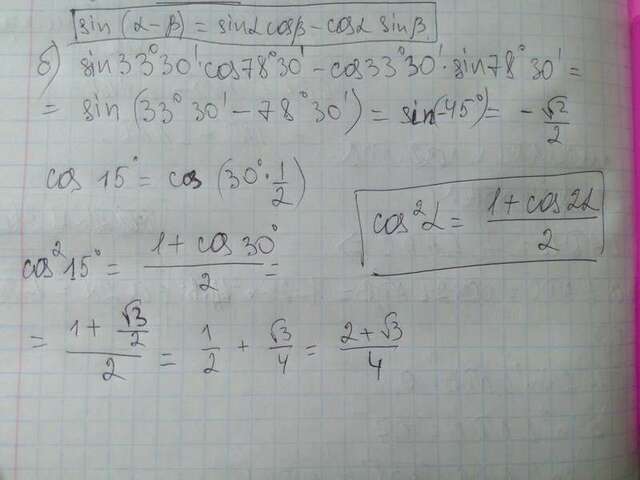 sin (α-β) = sinα cosβ - cosα sinβ
б) sin33°30'·cos78°30' - cos33°30'·sin78°30' =
= sin (33°30' - 78°30') = sin(-45°) = - √2/2
cos 15° = cos (30° · 1/2)
cos²α = (1 + cos2α)/2
cos²15° = (1 + cos30°)/2 =
= (1 + √3/2)/2 = 1/2 + √3/4 = (2 + √3)/4